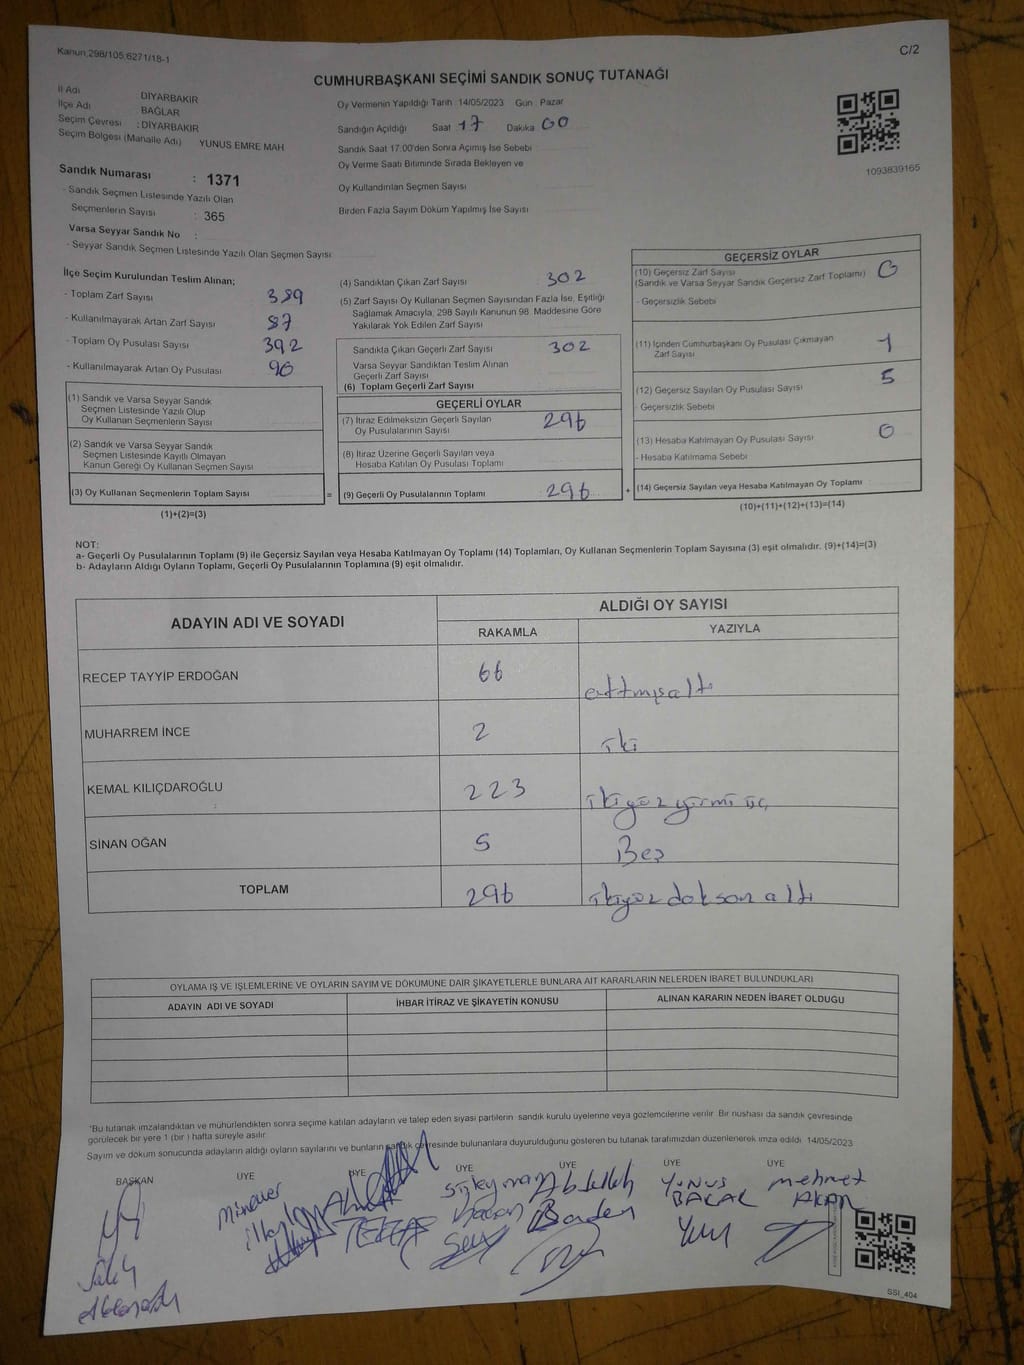 Kanun:298/105,6271/18-1
C/2
CUMHURBAŞKANI SEÇİMİ SANDIK SONUÇ TUTANAĞI
İl Adı DİYARBAKIR
İlçe Adı BAĞLAR
Seçim Çevresi : DİYARBAKIR
Seçim Bölgesi (Mahalle Adı) YUNUS EMRE MAH
Oy Vermenin Yapıldığı Tarih 14/05/2023 Gün : Pazar
Sandığın Açıldığı Saat 17 Dakika 00
Sandık Saat 17:00'den Sonra Açılmış İse Sebebi
Oy Verme Saati Bitiminde Sırada Bekleyen ve
Oy Kullandırılan Seçmen Sayısı
Birden Fazla Sayım Döküm Yapılmış İse Sayısı
1093839165
Sandık Numarası : 1371
- Sandık Seçmen Listesinde Yazılı Olan
Seçmenlerin Sayısı : 365
Varsa Seyyar Sandık No :
- Seyyar Sandık Seçmen Listesinde Yazılı Olan Seçmen Sayısı
İlçe Seçim Kurulundan Teslim Alınan;
- Toplam Zarf Sayısı 389
- Kullanılmayarak Artan Zarf Sayısı 87
- Toplam Oy Pusulası Sayısı 392
- Kullanılmayarak Artan Oy Pusulası 90
(1) Sandık ve Varsa Seyyar Sandık
Seçmen Listesinde Yazılı Olup
Oy Kullanan Seçmenlerin Sayısı
(2) Sandık ve Varsa Seyyar Sandık
Seçmen Listesinde Kayıtlı Olmayan
Kanun Gereği Oy Kullanan Seçmen Sayısı
(3) Oy Kullanan Seçmenlerin Toplam Sayısı
(1)+(2)=(3)
(4) Sandıktan Çıkan Zarf Sayısı 302
(5) Zarf Sayısı Oy Kullanan Seçmen Sayısından Fazla İse, Eşitliği
Sağlamak Amacıyla, 298 Sayılı Kanunun 98. Maddesine Göre
Yakılarak Yok Edilen Zarf Sayısı
Sandıkta Çıkan Geçerli Zarf Sayısı 302
Varsa Seyyar Sandıktan Teslim Alınan
Geçerli Zarf Sayısı
(6) Toplam Geçerli Zarf Sayısı
GEÇERLİ OYLAR
(7) İtiraz Edilmeksizin Geçerli Sayılan
Oy Pusulalarının Sayısı 296
(8) İtiraz Üzerine Geçerli Sayılan veya
Hesaba Katılan Oy Pusulası Toplamı
= (9) Geçerli Oy Pusulalarının Toplamı 296 +
GEÇERSİZ OYLAR
(10) Geçersiz Zarf Sayısı 0
(Sandık ve Varsa Seyyar Sandık Geçersiz Zarf Toplamı)
- Geçersizlik Sebebi
(11) İçinden Cumhurbaşkanı Oy Pusulası Çıkmayan
Zarf Sayısı 1
(12) Geçersiz Sayılan Oy Pusulası Sayısı 5
- Geçersizlik Sebebi
(13) Hesaba Katılmayan Oy Pusulası Sayısı 0
- Hesaba Katılmama Sebebi
(14) Geçersiz Sayılan veya Hesaba Katılmayan Oy Toplamı
(10)+(11)+(12)+(13)=(14)
NOT:
a- Geçerli Oy Pusulalarının Toplamı (9) ile Geçersiz Sayılan veya Hesaba Katılmayan Oy Toplamı (14) Toplamları, Oy Kullanan Seçmenlerin Toplam Sayısına (3) eşit olmalıdır. (9)+(14)=(3)
b- Adayların Aldığı Oyların Toplamı, Geçerli Oy Pusulalarının Toplamına (9) eşit olmalıdır.
ADAYIN ADI VE SOYADI ALDIĞI OY SAYISI
RAKAMLA YAZIYLA
RECEP TAYYİP ERDOĞAN 66 attmışaltı
MUHARREM İNCE 2 iki
KEMAL KILIÇDAROĞLU 223 ikiyüz yirmi üç
SİNAN OĞAN 5 Beş
TOPLAM 296 ikiyüz doksan altı
OYLAMA İŞ VE İŞLEMLERİNE VE OYLARIN SAYIM VE DÖKÜMÜNE DAİR ŞİKAYETLERLE BUNLARA AİT KARARLARIN NELERDEN İBARET BULUNDUKLARI
ADAYIN ADI VE SOYADI İHBAR İTİRAZ VE ŞİKAYETİN KONUSU ALINAN KARARIN NEDEN İBARET OLDUĞU
*Bu tutanak imzalandıktan ve mühürlendikten sonra seçime katılan adayların ve talep eden siyasi partilerin sandık kurulu üyelerine veya gözlemcilerine verilir. Bir nüshası da sandık çevresinde
görülecek bir yere 1 (bir) hafta süreyle asılır.
Sayım ve döküm sonucunda adayların aldığı oyların sayılarını ve bunların sandık çevresinde bulunanlara duyurulduğunu gösteren bu tutanak tarafımızdan düzenlenerek imza edildi 14/05/2023
BAŞKAN ÜYE ÜYE ÜYE ÜYE ÜYE ÜYE
Süleyman Abdullah YUNUS mehmet
Hasan BAKAL AKAN
Salih
SSI_404